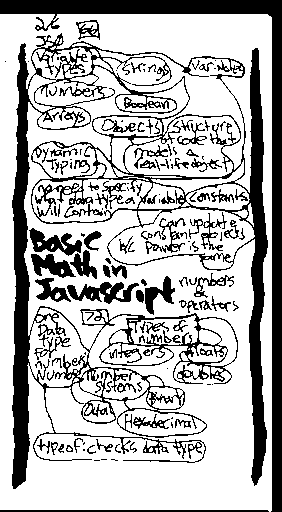 2/6
JSO
66
Variable
Types
Strings
Var. Notes
numbers
Boolean
Arrays
Objects
Structure
of code that
models a
real-life object
Dynamic
Typing
no need to specify
what data type a variable
will contain
Constants
can update
constant objects
b/c power is the
same
Basic
Math in
Javascript
numbers
&
operators
one
Data
type
for
numbers
Number
72
Types of
numbers
integers
floats
doubles
Number
systems
Binary
Octal
Hexadecimal
typeof: checks data type